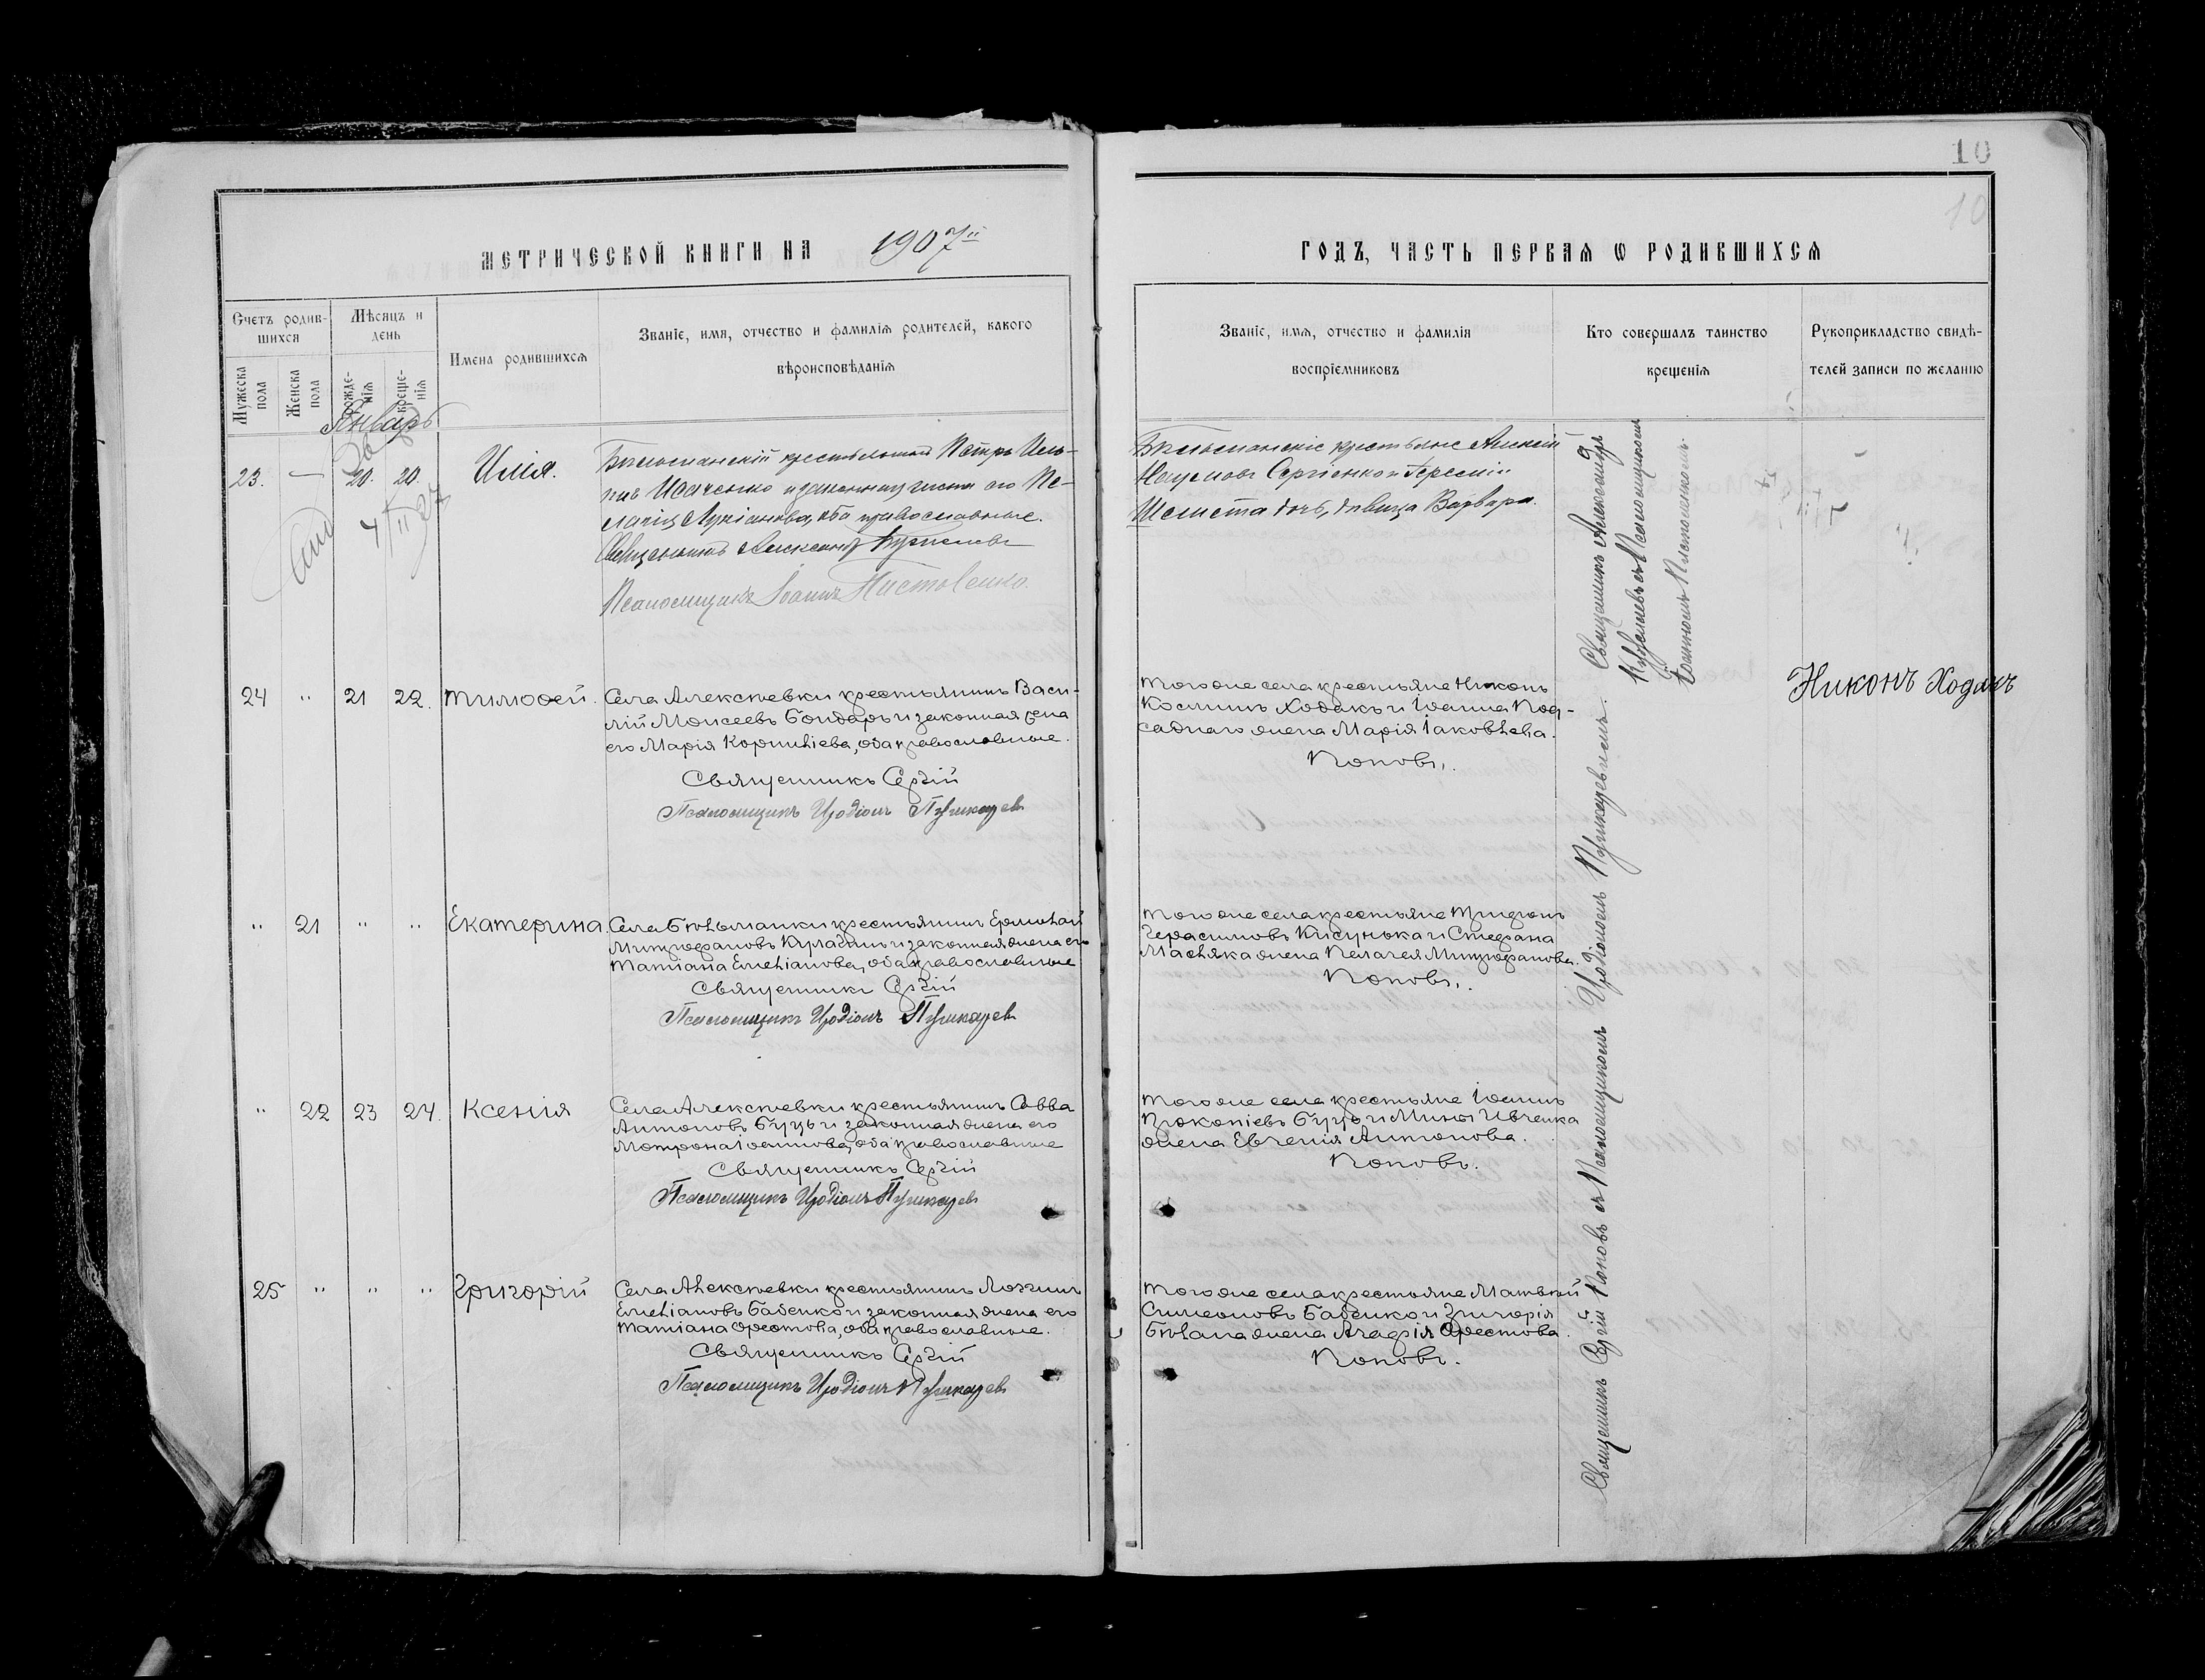 10
10
МЕТРИЧЕСКОЙ КНИГИ НА 1907
ГОДЪ, ЧАСТЬ ПЕРВАЯ Ѡ РОДИВШИХСЯ
Счетъ родив-
шихся
Мужеска
пола
Женска
пола
Мѣсяцъ и
день
рожде-
нія
креще-
нія
Имена родившихся
Званіе, имя, отчество и фамилія родителей, какого
вѣроисповѣданія
Званіе, имя, отчество и фамилія
воспріемниковъ
Кто совершалъ таинство
крещенія
Рукоприкладство свидѣ-
телей записи по желанію
Январь
23. — 20. 20. Илія.
крестьянинъ Петръ
Исаченко и законная жена его Пе-
лагія Лукіанова, оба православные.
Священникъ Александр
Псаломщикъ Іоаннъ
крестьяне Алексій
Наумовъ Сергіенко и
дочь, дѣвица Варвара.
Священникъ Александръ
съ Псаломщикомъ
Іоанномъ
24 " 21 22. Тимофей.
Села Алексѣевки крестьянинъ Васи-
лій Моисеевъ Бондарь и законная жена
его Марія Корнилiева, оба православные.
Священникъ Сергій
Псаломщикъ Иродіонъ Пушкарев
Того же села крестьяне Никонъ
Косминъ Ходакъ и Іоанна Под-
саднаго жена Марія Іаковлева.
Поповъ.
Никонъ Ходакъ
" 21 " " Екатерина.
Села Бѣльманки крестьянинъ Ермолай
Митрофановъ Кулагинъ и законная жена его
Татіана Емеліанова, оба православные
Священникъ Сергій
Псаломщикъ Иродіонъ Пушкарев
Того же села крестьяне
Герасимовъ и Стефана
жена Пелагея Митрофанова.
Поповъ.
" 22 23 24. Ксенія
Села Алексѣевки крестьянинъ Савва
Антоновъ Буцъ и законная жена его
Матрона Іоаннова, оба православные
Священникъ Сергій
Псаломщикъ Иродіонъ Пушкарев
Того же села крестьяне Іоаннъ
Прокопіевъ Буцъ и Мины Ивченка
жена Евгенія Антонова.
Поповъ.
25 " " " Григорій
Села Алексѣевки крестьянинъ Логгинъ
Емеліановъ Бабенко и законная жена его
Татіана Орестова, оба православные.
Священникъ Сергій
Псаломщикъ Иродіонъ Пушкарев
Того же села крестьяне Матвѣй
Симеоновъ Бабенко и Григорія
Бѣлана жена Агафія Орестова.
Поповъ.
Священникъ Сергій Поповъ съ Псаломщикомъ Иродіономъ Пушкаревымъ.